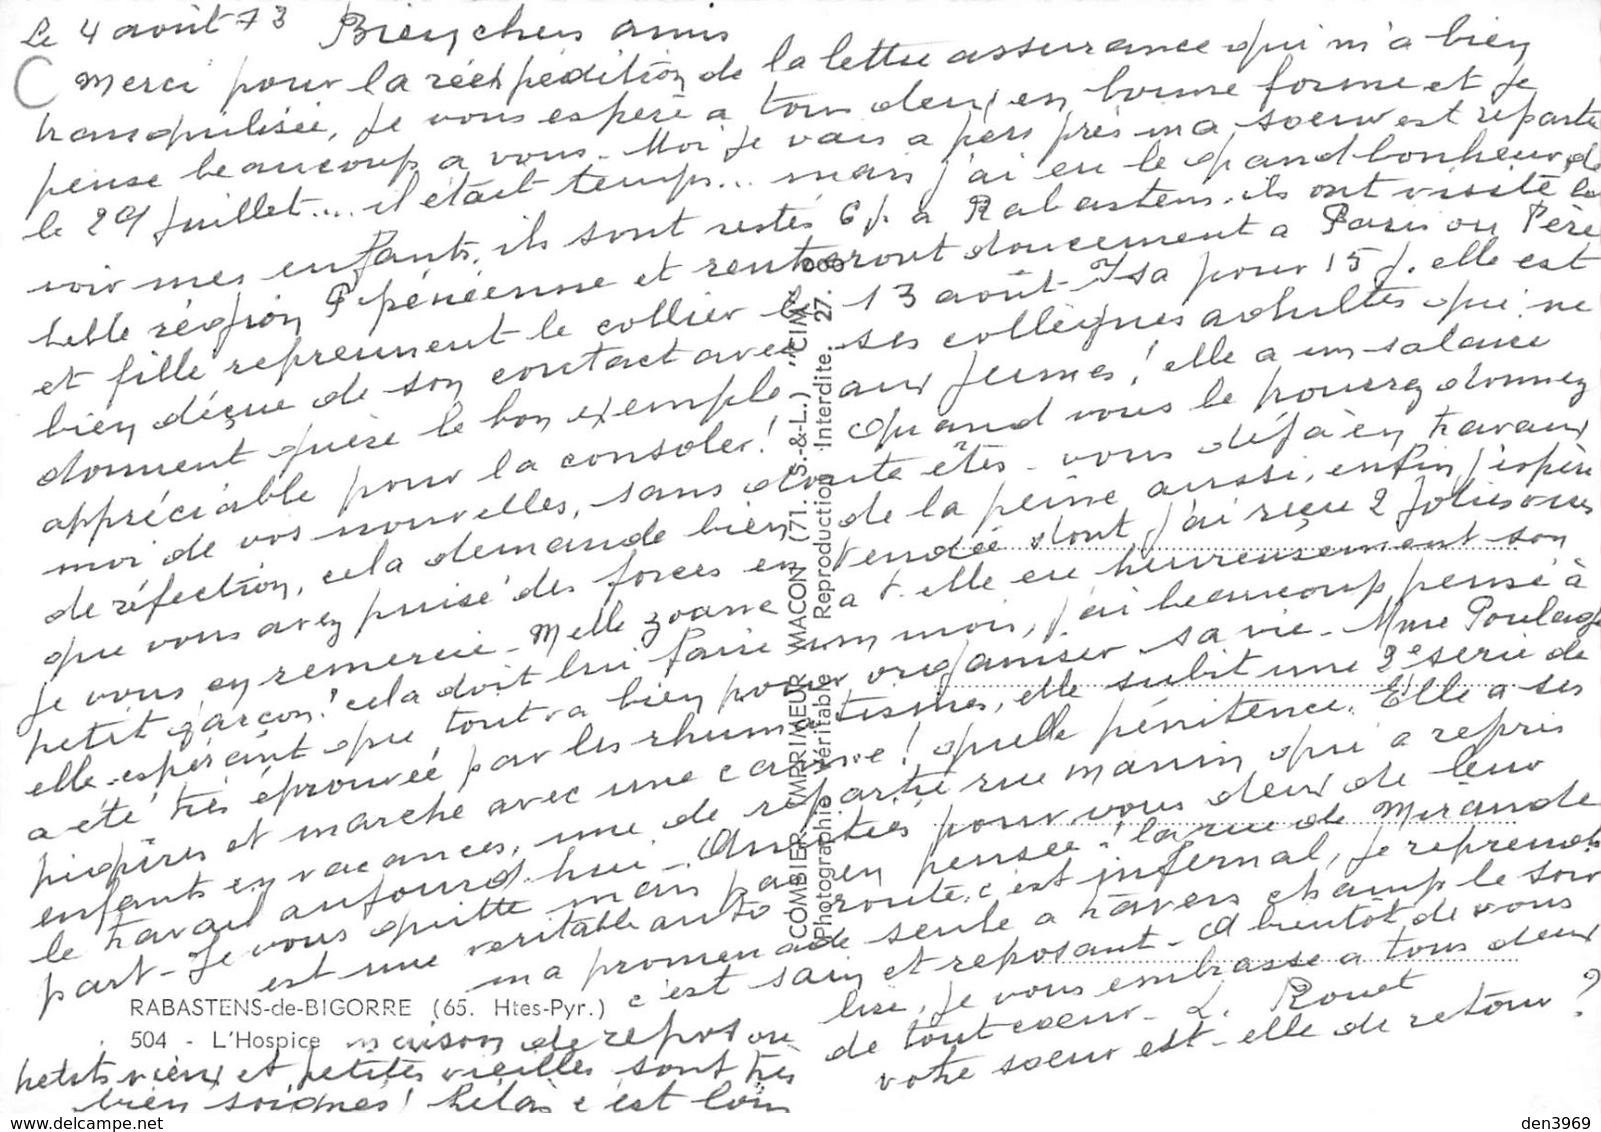 Le 4 août 73 Bien chers amis
Merci pour la réexpédition de la lettre assurance qui m'a bien
tranquilisée, je vous espère a tous deux en bonne forme et je
pense beaucoup a vous. Moi je vais a peu près ma soeur est repartie
le 29 juillet... il était temps... mais j'ai eu le grand bonheur de
voir mes enfants, ils sont restés 6 j. a Rabastens. ils ont visité la
belle région Pyrénéenne et rentreront doucement a Paris ou Père
et fille reprennent le collier le 13 août - Isa pour 15 j. elle est
bien déçue de son contact avec ses collègues adultes qui ne
donnent guère le bon exemple aux jeunes! elle a un salaire
appréciable pour la consoler! Quand vous le pourrez donnez
moi de vos nouvelles, sans doute êtes-vous déjà en travaux
de réfection, cela demande bien de la peine aussi, enfin j'espère
que vous avez puisé des forces en Vendée dont j'ai reçu 2 jolies vues
je vous en remercie - Melle a t-elle eu heureusement son
petit garçon? cela doit lui faire un mois, j'ai beaucoup pensé à
elle espérant que tout va bien pour organiser sa vie - Mme
a été très éprouvée par les rhumatismes, elle subit une 2e serie de
piqûres et marche avec une canne! quelle pénitence. Elle a ses
enfants en vacances, une de repartie rue manin qui a repris
le travail aujourd'hui - Amitiés pour vous deux de leur
part - Je vous quitte mais pas en pensée! la rue de Mirande
est une veritable auto route, c'est infernal, je reprends
ma promenade seule a travers champ le soir
c'est sain et reposant - A bientôt de vous
lire, je vous embrasse a tous deux
de tout coeur - L. Rouet
votre soeur est-elle de retour?
RABASTENS-de-BIGORRE (65. Htes-Pyr.)
504 - L'Hospice maison de repos ou
petits vieux et petites vieilles sont très
bien soignés! hélas c'est loin
COMBIER IMPRIMEUR MACON (71. S.-&-L.) "CIM"
Photographie Véritable Reproduction Interdite. 27.
www.delcampe.net
den3969